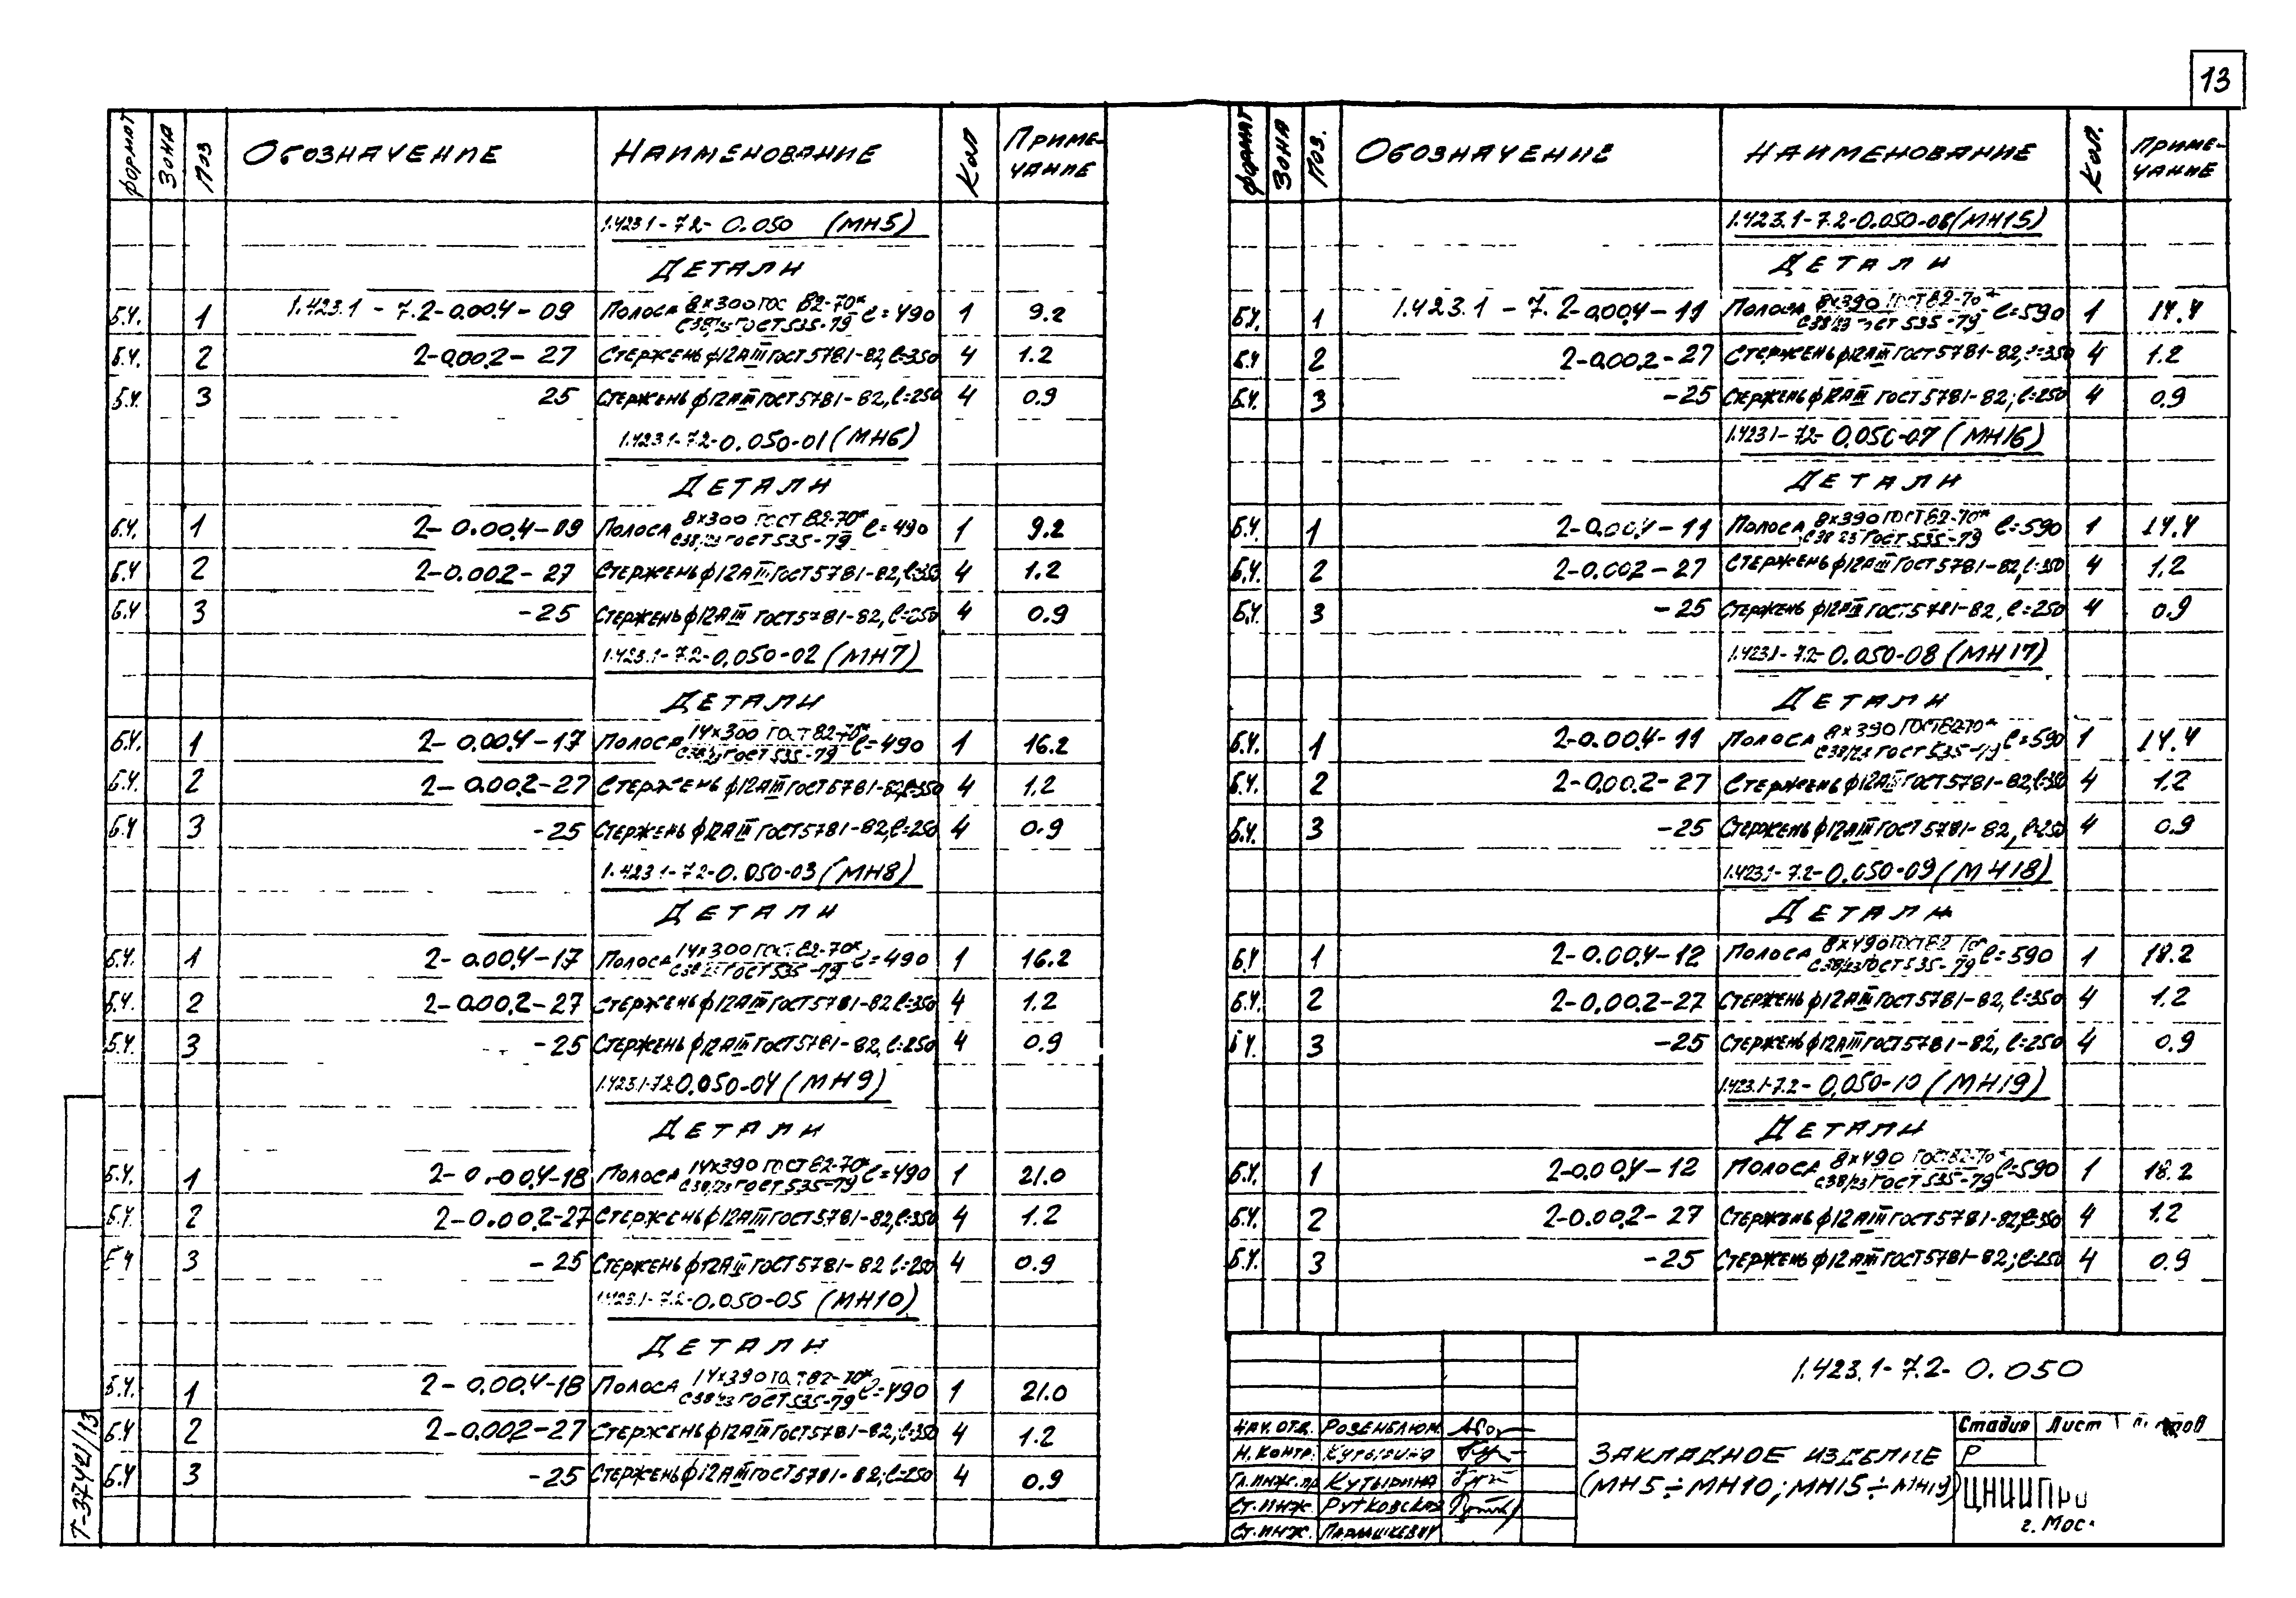 13
Формат Зона Поз Обозначение Наименование Кол Приме-
чание
1.423.1-7.2-0.050 (МН5)
Детали
Б.Ч. 1 1.423.1-7.2-0.00.4-09 Полоса 8х300 ГОС 82-70* / С38/23 ГОСТ 535-79 ℓ=490 1 9.2
Б.Ч. 2 2-0.00.2-27 Стержень ф12АIII ГОСТ 5781-82, ℓ=350 4 1.2
Б.Ч. 3 25 Стержень ф12АIII ГОСТ 5781-82, ℓ=250 4 0.9
1.423.1-7.2-0.050-01 (МН6)
Детали
Б.Ч. 1 2-0.00.4-09 Полоса 8х300 ГОСТ 82-70* / С38/23 ГОСТ 535-79 ℓ=490 1 9.2
Б.Ч 2 2-0.00.2-27 Стержень ф12АIII ГОСТ 5781-82, ℓ=350 4 1.2
Б.Ч 3 -25 Стержень ф12АIII ГОСТ 5781-82, ℓ=250 4 0.9
1.423.1-7.2-0.050-02 (МН7)
Детали
Б.Ч. 1 2-0.00.4-17 Полоса 14х300 ГОСТ 82-70* / С38/23 ГОСТ 535-79 ℓ=490 1 16.2
Б.Ч 2 2-0.00.2-27 Стержень ф12АIII ГОСТ 5781-82, ℓ=350 4 1.2
Б.Ч 3 -25 Стержень ф12АIII ГОСТ 5781-82, ℓ=250 4 0.9
1.423.1-7.2-0.050-03 (МН8)
Детали
Б.Ч. 1 2-0.00.4-17 Полоса 14х300 ГОСТ 82-70* / С38/23 ГОСТ 535-79 ℓ=490 1 16.2
Б.Ч. 2 2-0.00.2-27 Стержень ф12АIII ГОСТ 5781-82 ℓ=350 4 1.2
Б.Ч. 3 -25 Стержень ф12АIII ГОСТ 5781-82, ℓ=250 4 0.9
1.423.1-7.2 0.050-04 (МН9)
Детали
Б.Ч. 1 2-0.00.4-18 Полоса 14х390 ГОСТ 82-70* / С38/23 ГОСТ 535-79 ℓ=490 1 21.0
Б.Ч. 2 2-0.00.2-27 Стержень ф12АIII ГОСТ 5781-82, ℓ=350 4 1.2
Б Ч 3 -25 Стержень ф12АIII ГОСТ 5781-82 ℓ=250 4 0.9
1.423.1-7.2-0.050-05 (МН10)
Детали
Б.Ч. 1 2-0.00.4-18 Полоса 14х390 ГОСТ 82-70* / С38/23 ГОСТ 535-79 ℓ=490 1 21.0
Б.Ч 2 2-0.00.2-27 Стержень ф12АIII ГОСТ 5781-82, ℓ=350 4 1.2
Б.Ч 3 -25 Стержень ф12АIII ГОСТ 5781-82; ℓ=250 4 0.9
Т-3742/13
Формат Зона Поз. Обозначение Наименование Кол. Приме-
чание
1.423.1-7.2-0.050-06 (МН15)
Детали
Б.Ч. 1 1.423.1-7.2-0.00.4-11 Полоса 8х390 ГОСТ 82-70* / С38/23 ГОСТ 535-79 ℓ=590 1 14.4
Б.Ч 2 2-0.00.2-27 Стержень ф12АIII ГОСТ 5781-82, ℓ=350 4 1.2
Б.Ч. 3 -25 Стержень ф12АIII ГОСТ 5781-82; ℓ=250 4 0.9
1.423.1-7.2-0.050-07 (МН16)
Детали
Б.Ч 1 2-0.00.4-11 Полоса 8х390 ГОСТ 82-70* / С38 23 ГОСТ 535-79 ℓ=590 1 14.4
Б.Ч. 2 2-0.00.2-27 Стержень ф12АIII ГОСТ 5781-82, ℓ=350 4 1.2
Б.Ч. 3 -25 Стержень ф12АIII ГОСТ 5781-82, ℓ=250 4 0.9
1.423.1-7.2-0.050-08 (МН17)
Детали
Б.Ч. 1 2-0.00.4-11 Полоса 8х390 ГОСТ 82-70* / С38/23 ГОСТ 535-79 ℓ=590 1 14.4
Б.Ч. 2 2-0.00.2-27 Стержень ф12АIII ГОСТ 5781-82, ℓ=350 4 1.2
Б.Ч. 3 -25 Стержень ф12АIII ГОСТ 5781-82, ℓ=250 4 0.9
1.423.1-7.2-0.050-09 (МН18)
Детали
Б.Ч 1 2-0.00.4-12 Полоса 8х490 ГОСТ 82 70* / С38/23 ГОСТ 535-79 ℓ=590 1 18.2
Б.Ч. 2 2-0.00.2-27 Стержень ф12АIII ГОСТ 5781-82, ℓ=350 4 1.2
Б Ч. 3 -25 Стержень ф12АIII ГОСТ 5781-82, ℓ=250 4 0.9
1.423.1-7.2-0.050-10 (МН19)
Детали
Б.Ч. 1 2-0.00.4-12 Полоса 8х490 ГОСТ 82-70* / С38/23 ГОСТ 535-79 ℓ=590 1 18.2
Б.Ч. 2 2-0.00.2-27 Стержень ф12АIII ГОСТ 5781-82, ℓ=350 4 1.2
Б.Ч. 3 -25 Стержень ф12АIII ГОСТ 5781-82; ℓ=250 4 0.9
1.423.1-7.2-0.050
Нач. отд. Розенблюм
Н. контр. Кутырина
Гл. инж. пр Кутырина
Ст. инж. Рутковская
Ст. инж. Паплашкевич
Закладное изделие
(МН5÷МН10; МН15÷МН19)
Стадия Лист
Р
ЦНИИПро
г. Мос